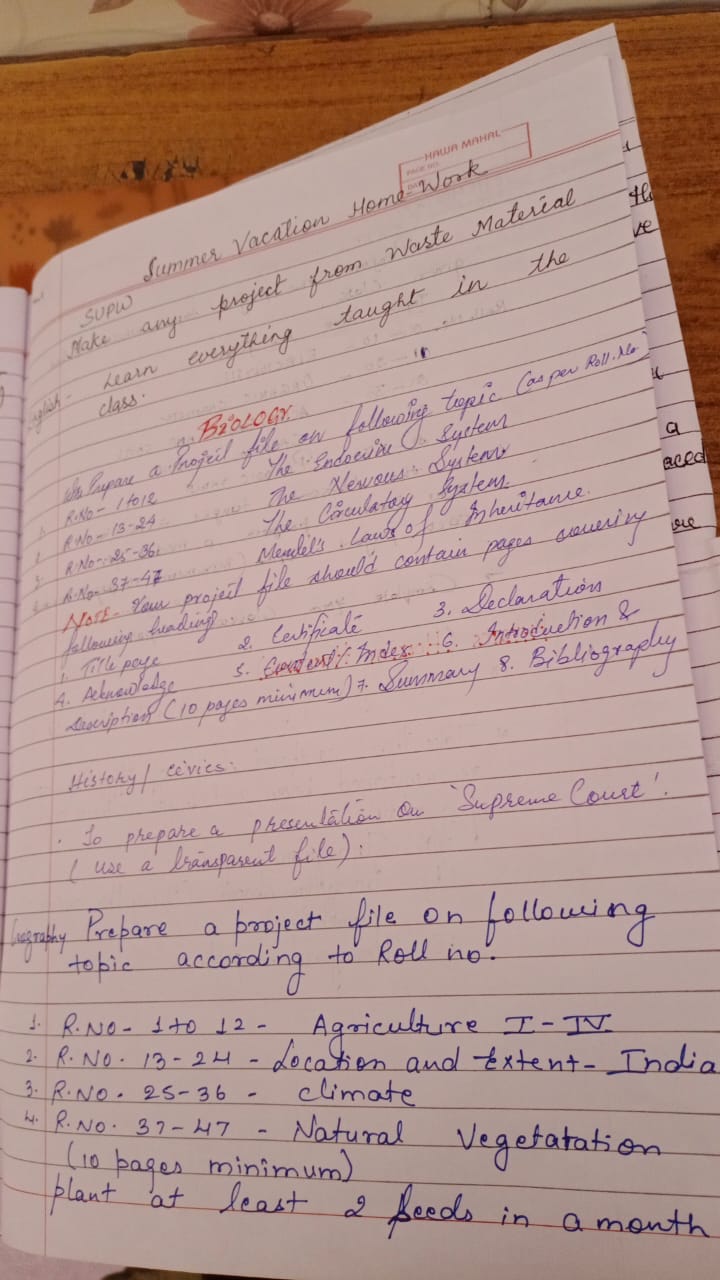 HAWA MAHAL
PAGE NO.
Summer Vacation Home-Work
SUPW
Make any project from Waste Material
English- Learn everything taught in the
class.
BIOLOGY
Prepare a Project file on following topic (as per Roll.No
R.No- 1to12 The Endocrine System
R.No- 13-24 The Nervous System
R.No- 25-36 The Circulatory System.
R.No- 37-47 Mendel's Laws of Inheritance.
NOTE- Your project file should contain pages covering
following heading
1. Title page 2. Certificate 3. Declaration
4. Acknowledge 5. Content/Index 6. Introduction &
Description (10 pages minimum) 7. Summary 8. Bibliography
History/ Civics:
. To prepare a presentation on 'Supreme Court'.
(use a transparent file).
Geography Prepare a project file on following
topic according to Roll no.
1. R.NO- 1to 12 - Agriculture I-IV
2. R. NO. 13-24 - Location and Extent- India
3. R.NO. 25-36 - climate
4. R.NO. 37-47 - Natural Vegetatation
(10 pages minimum)
plant at least 2 seeds in a month